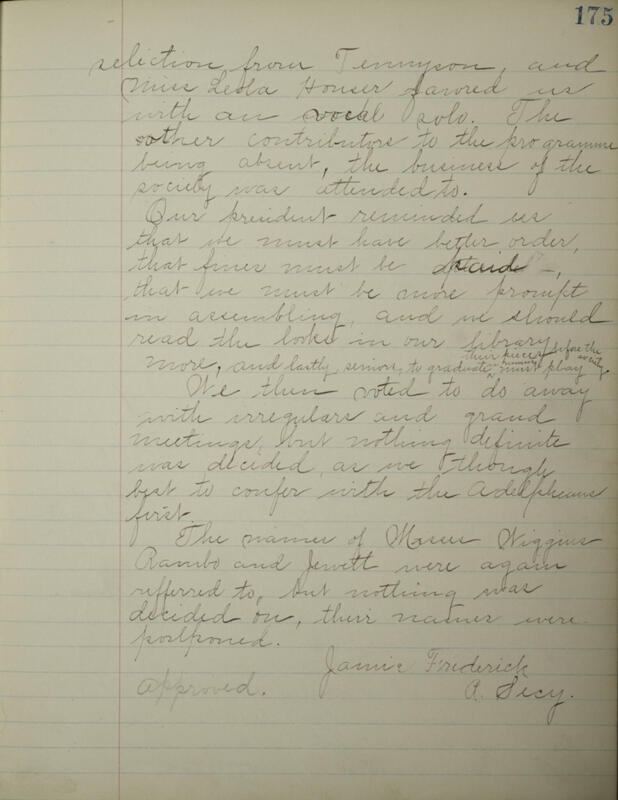 175
selection from Tennyson, and
Miss Leola Houser favored us
with an vocal solo. The
other contributors to the programme
being absent, the business of the
society was attended to.
Our president reminded us
that we must have better order,
that fines must be paid –,
that we must be more prompt
in assembling, and we should
read the books in our library
more, and lastly, seniors, to graduate in music must play
their pieces before the society.
We then voted to do away
with irregulars and grand
meetings, but nothing definite
was decided, as we though
best to confer with the Adelpheans
first.
The names of Misses Wiggins
Rambo and Jewett were again
refferred to, but nothing was
decided on, their names were
postponed.
Jamie Frederick
R. Secy.
Approved.